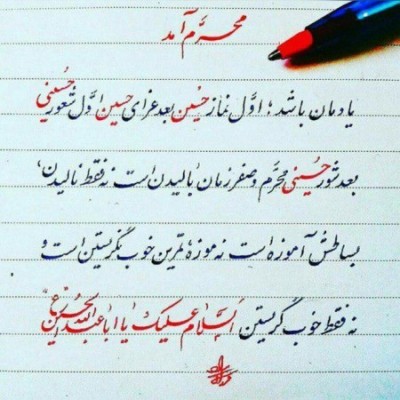 محرّم آمد
یادمان باشد؛ اوّل نماز حسین بعد عزای حسین اوّل شعور حسینی
بعد شور حسینی محرّم و صفر زمان بالیدن است نه فقط نالیدن،
بساطش آموزه است نه موزه، تمرین خوب نگریستن است و
نه فقط خوب گریستن السّلام علیک یا اباعبدالله الحسین